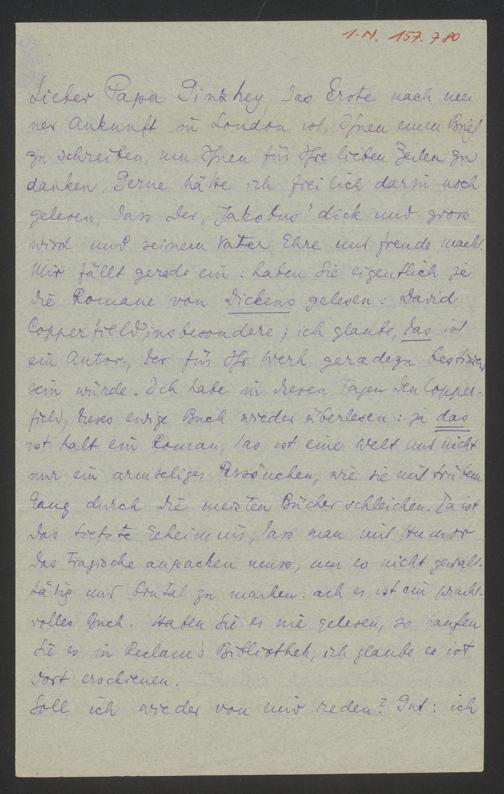 I.N. 157.780
Lieber Papa Ginzkey, das Erste nach mei
ner Ankunft in London ist, Ihnen einen Brief
zu schreiben, um Ihnen für Ihre lieben Zeilen zu
danken. Gerne hätte ich freilich darin noch
gelesen, dass der „Jakobus" dick und gross
wird und seinem Vater Ehre und Freude macht.
Mir fällt gerade ein: haben Sie eigentlich je
die Romane von Dickens gelesen: David
Copperfield insbesondere; ich glaube, das ist
ein Autor, der für Ihr Werk geradezu bestimmt
sein würde. Ich habe in diesen Tagen den Copper-
field, dieses ewige Buch wieder überlesen: ja das
ist halt ein Roman, das ist eine Welt und nicht
nur ein armseliges Persönchen, wie sie mit trübem
Gang durch die meisten Bücher schleichen. Da ist
das tiefste Geheimnis, dass man mit Humor
das Tragische anpacken muss, um es nicht gewalt-
tätig und brutal zu machen: ach es ist ein pracht-
volles Buch. Haben Sie es nie gelesen, so kaufen
Sie es in Reclam's Bibliothek, ich glaube es ist
dort erschienen.
Soll ich wieder von mir reden? Gut: ich